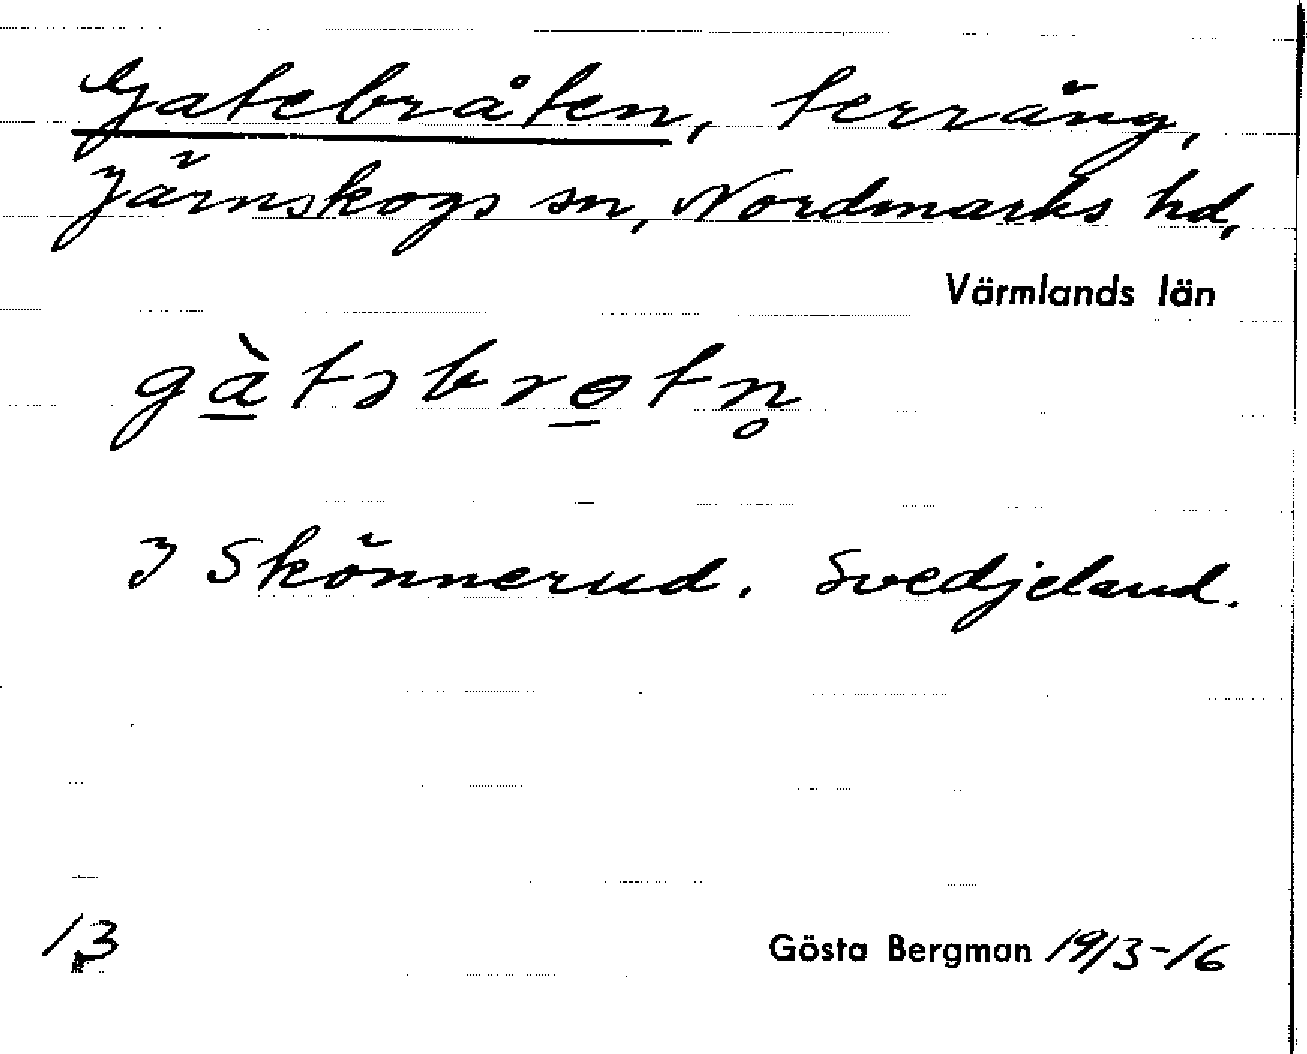 Gatebråten, terräng,
Järnskogs sn, Nordmarks hd,
Värmlands län
gàtəbrɵtn̥
I Skönnerud. Svedjeland.
13
Gösta Bergman 1913-16